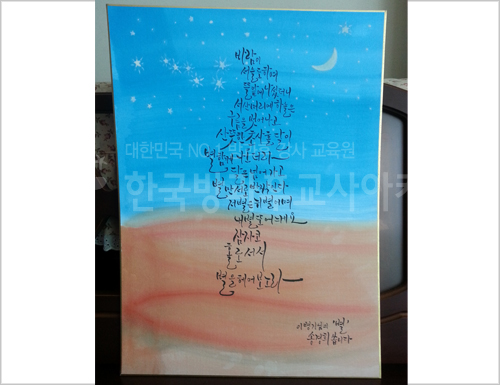 바람이
서늘도 하여
뜰 앞에 나섰더니
서산머리에 하늘은
구름을 벗어나고
산뜻한 초사흘 달이
별 함께 나오더라
달은 넘어가고
별만 서로 반짝인다
저 별은 뉘 별이며
내 별 또 어느게요
잠자코
홀로 서서
별을 헤어 보노라
이병기님의 '별'
씁니다
대한민국 NO.1 강사 교육원